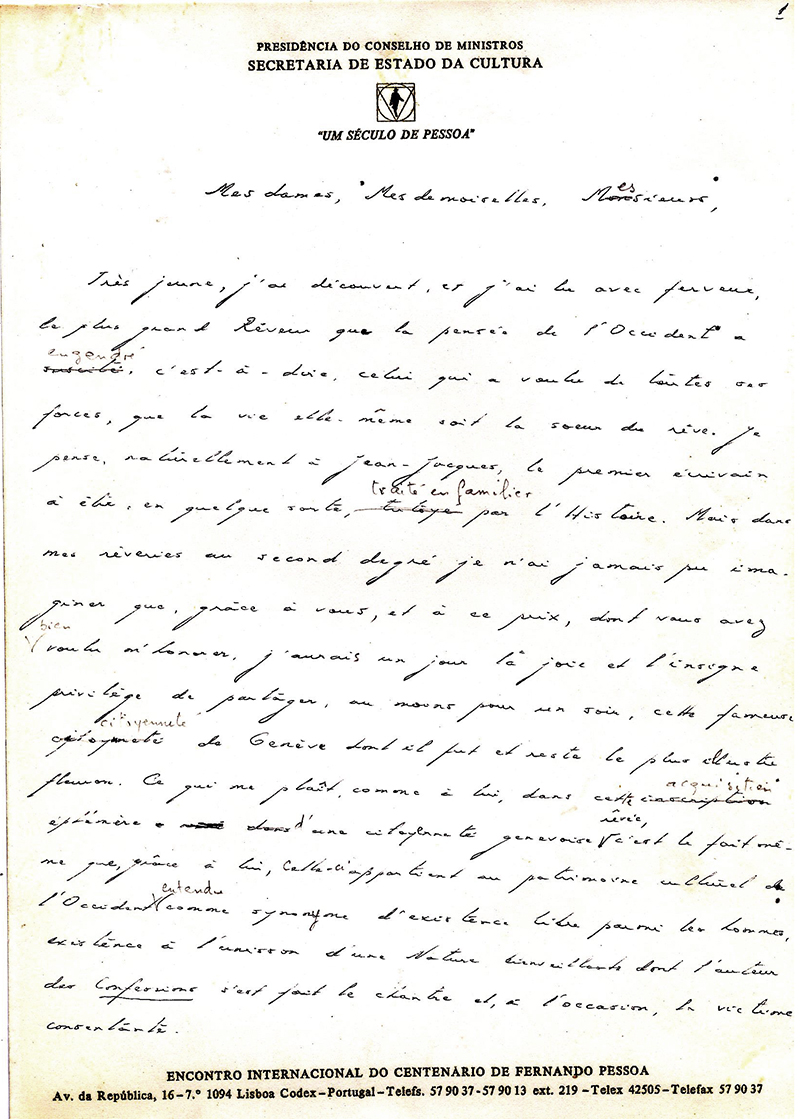 1
PRESIDÊNCIA DO CONSELHO DE MINISTROS
SECRETARIA DE ESTADO DA CULTURA
"UM SÉCULO DE PESSOA"
Mesdames, Mesdemoiselles, Messieurs,
Très jeune, j'ai découvert, et j'ai lu avec ferveur,
le plus grand Rêveur que la pensée de l'Occident a
engendré
suscité, c'est-à-dire, celui qui a voulu de toutes ses
forces, que la vie elle-même soit la soeur du rêve. Je
pense, naturellement à Jean-Jacques, le premier écrivain
traité en familier
à être, en quelque sorte, tutoyé par l'Histoire. Mais dans
mes rêveries au second degré je n'ai jamais pu ima-
giner que, grâce à vous, et à ce prix, dont vous avez
bien
voulu m'honorer, j'aurais un jour la joie et l'insigne
privilège de partager, au moins pour un soir, cette fameuse
citoyenneté
de Genève dont il fut et reste le plus illustre
fleuron. Ce qui me plaît, comme à lui, dans cette inscription
acquisition
éphémère d'une citoyenneté genevoise c'est le fait mê-
rêvée,
me que, grâce à lui, celle-ci appartient au patrimoine culturel de
entendu
l'Occident comme synonyme d'existence libre parmi les hommes,
existence à l'unisson d'une Nature bienveillante dont l'auteur
des Confessions s'est fait le chantre et, à l'occasion, la victime
consentante.
ENCONTRO INTERNACIONAL DO CENTENÁRIO DE FERNANDO PESSOA
Av. da República, 16-7.º 1094 Lisboa Codex-Portugal-Telefs. 57 90 37-57 90 13 ext. 219 -Telex 42505-Telefax 57 90 37